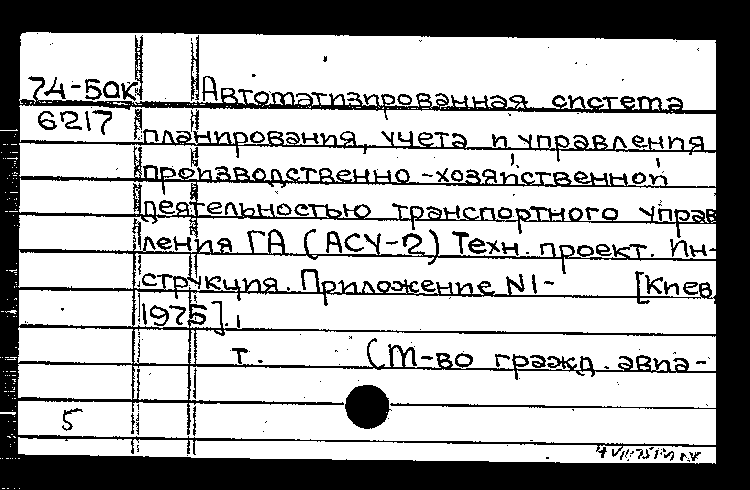 74-50к Автоматизированная система
6217 планирования, учета и управления
производственно-хозяйственной
деятельностью транспортного управ
ления ГА (АСУ-2) Техн. проект. Ин-
струкция. Приложение N1- [Киев,
1975].
т. (М-во гражд. авиа-
5